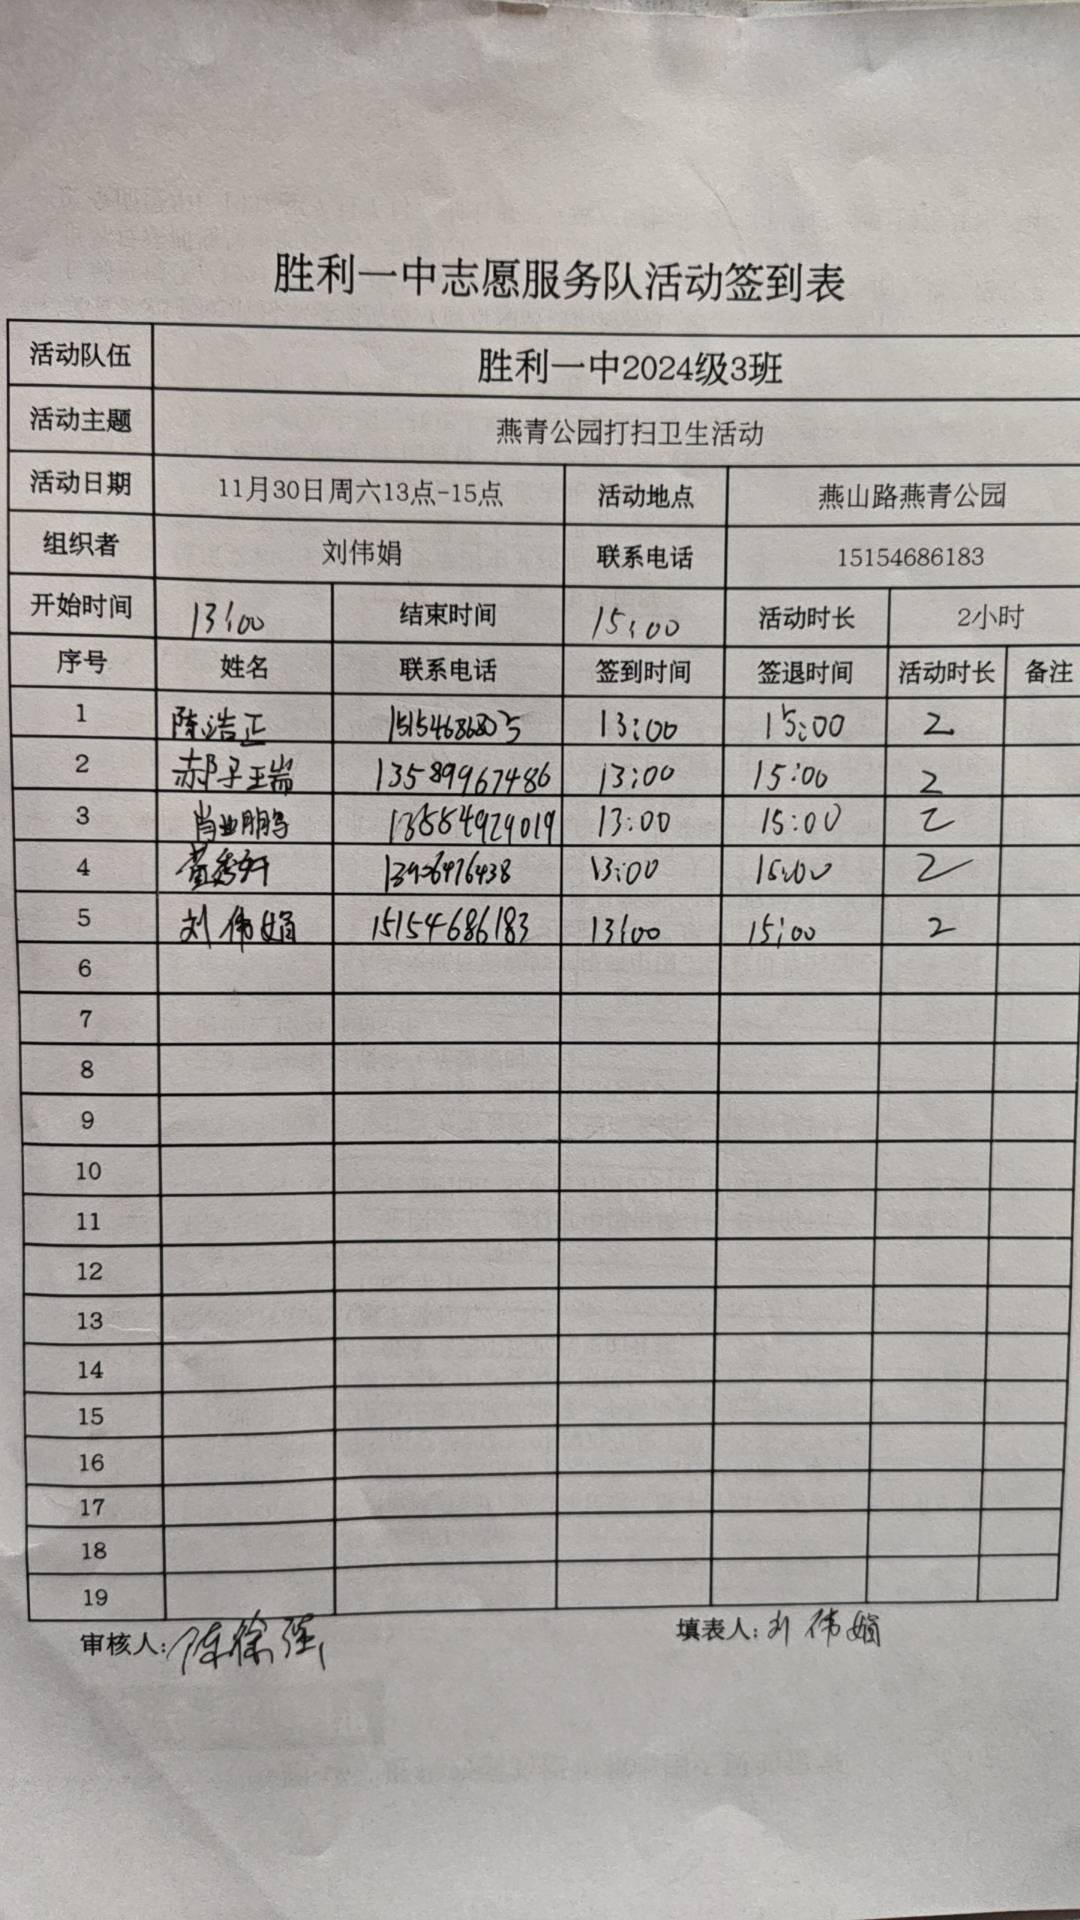 胜利一中志愿服务队活动签到表
活动队伍 胜利一中2024级3班
活动主题 燕青公园打扫卫生活动
活动日期 11月30日周六13点-15点 活动地点 燕山路燕青公园
组织者 刘伟娟 联系电话 15154686183
开始时间 13:00 结束时间 15:00 活动时长 2小时
序号 姓名 联系电话 签到时间 签退时间 活动时长 备注
1 陈浩正 13:00 15:00 2
2 郝子瑞 13589967486 13:00 15:00 2
3 肖业鹏 13:00 15:00 2
4 13:00 15:00 2
5 刘伟娟 15154686183 13:00 15:00 2
6
7
8
9
10
11
12
13
14
15
16
17
18
19
审核人:陈徐强 填表人:刘伟娟